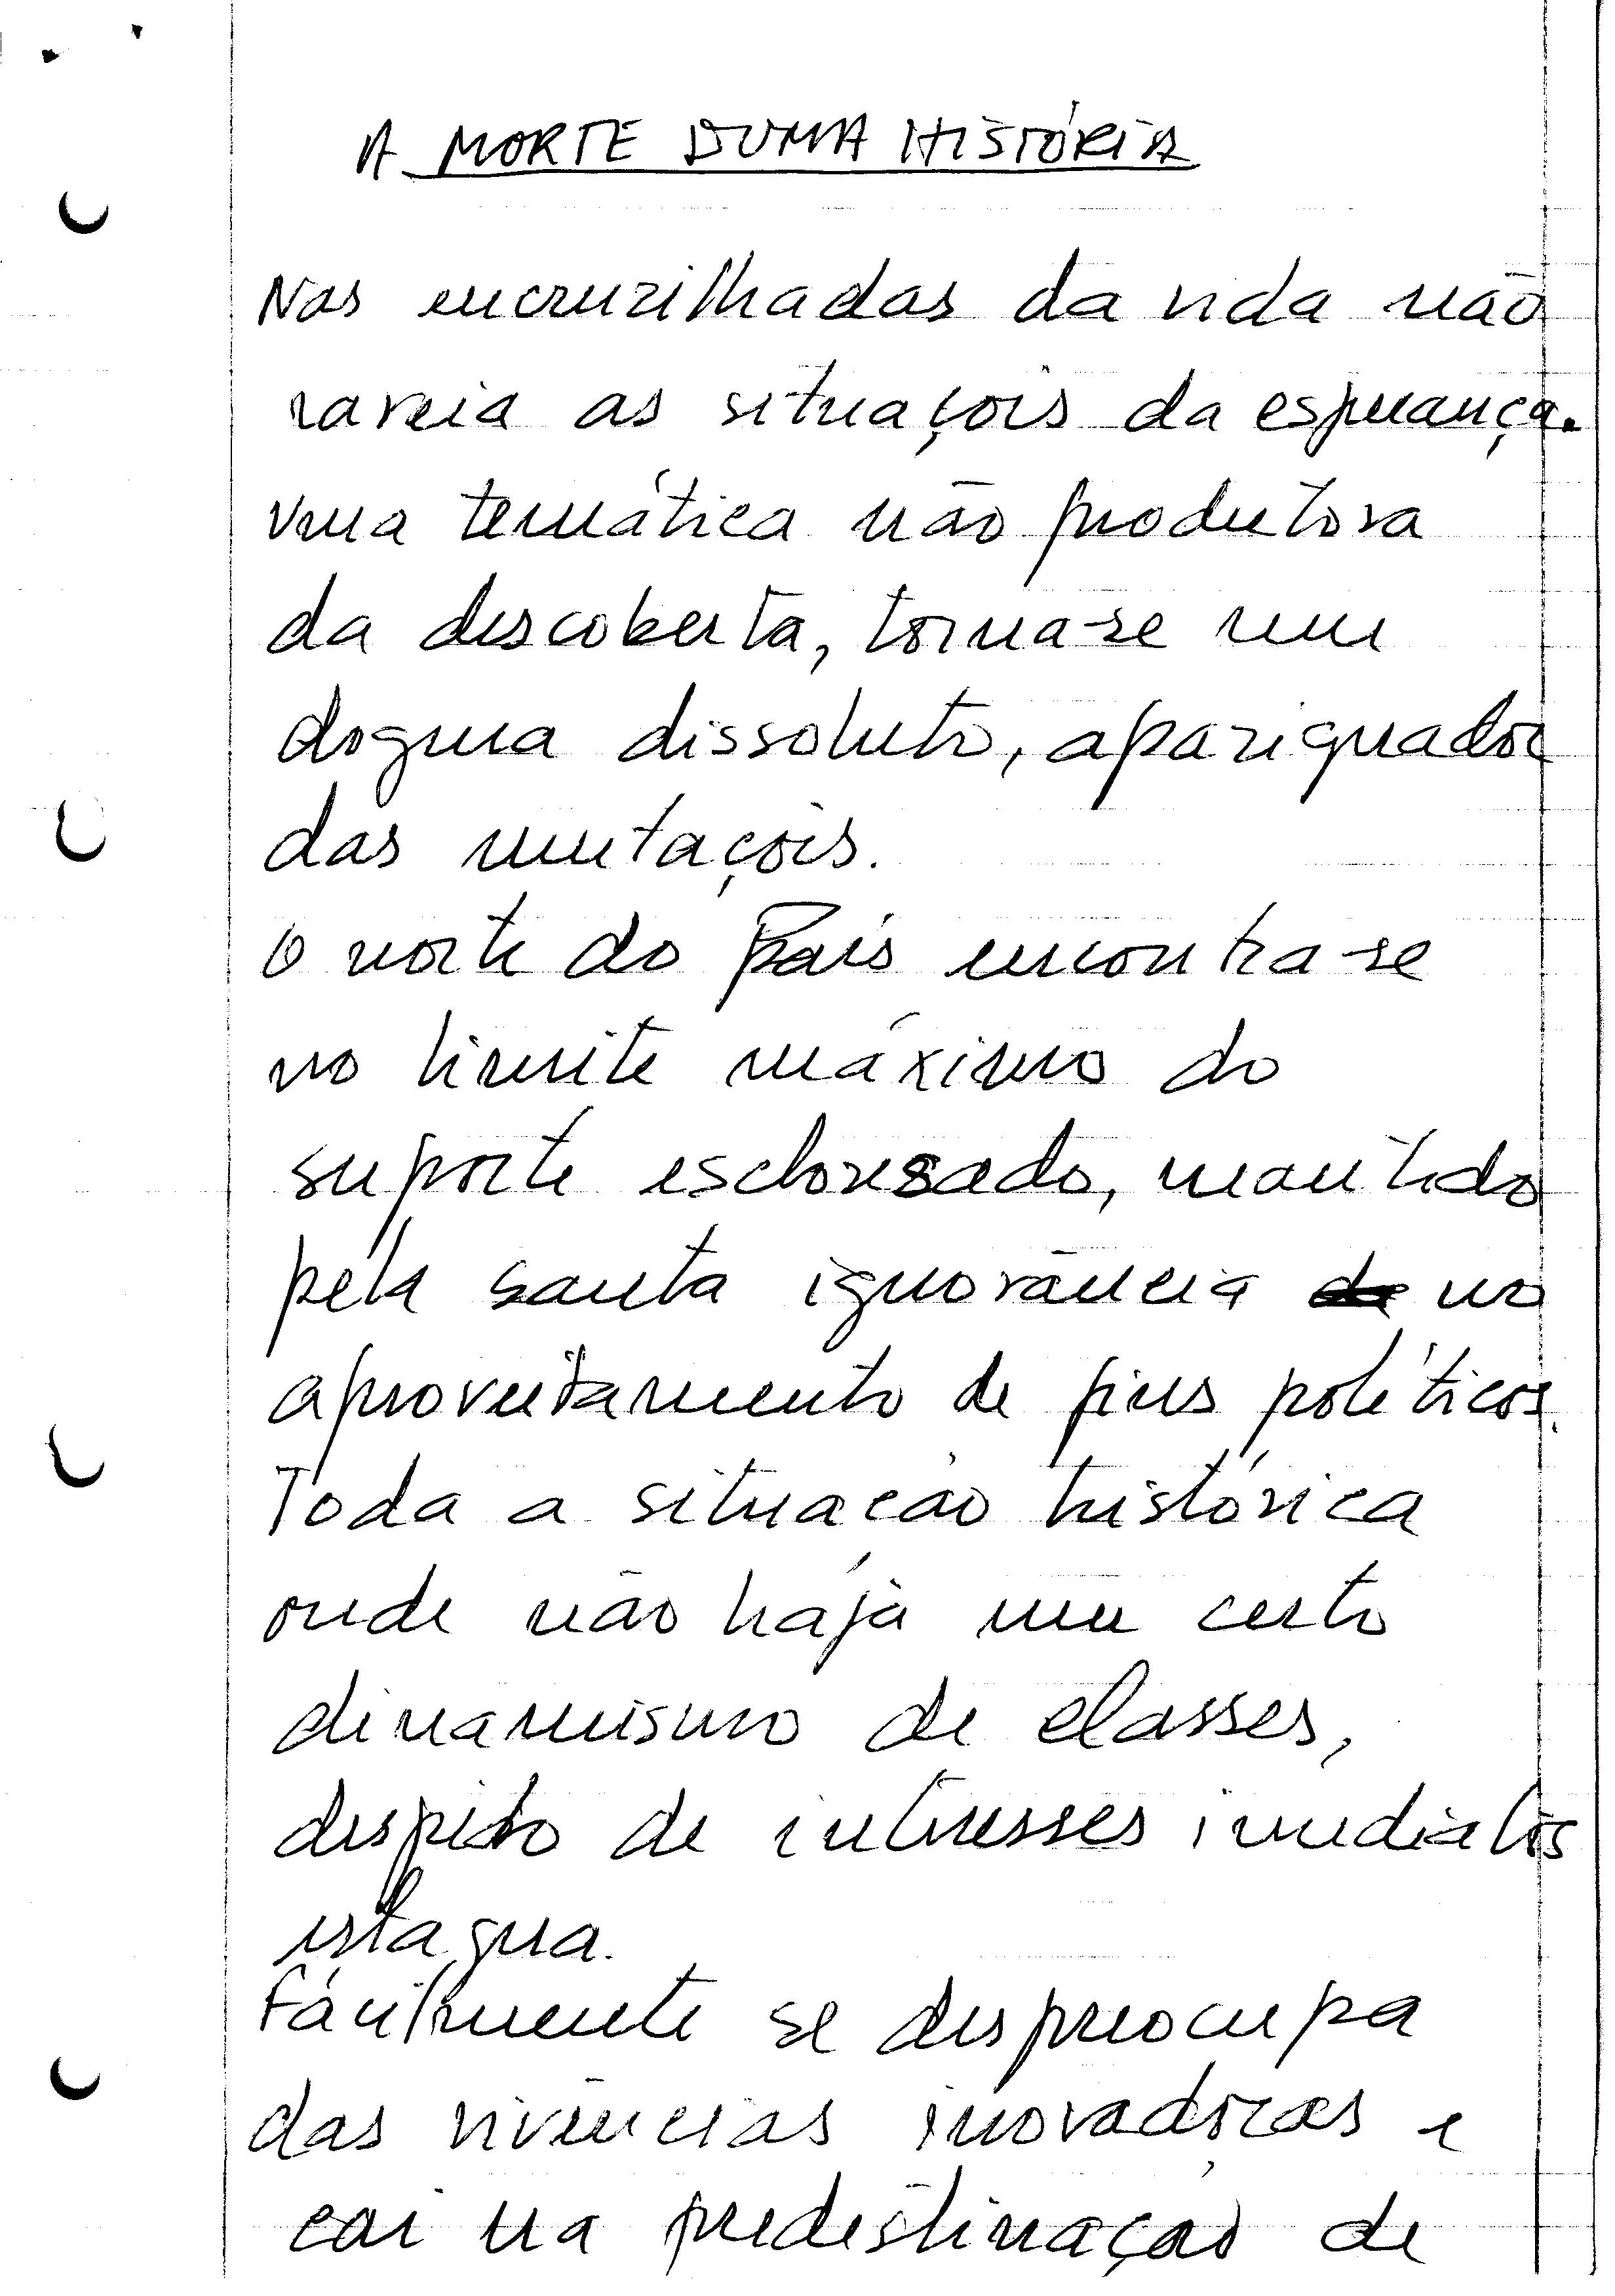 A MORTE DUMA HISTÓRIA
Nas encruzilhadas da vida não
rareia as situaçois da esperança.
Uma temática não produtora
da descoberta, torna-se num
dogma dissoluto, apaziguador
das mutaçois.
O norte do País encontra-se
no limite máximo do
suporte esclorosado, mantido
pela santa ignorância no
aproveitamento de fins políticos.
Toda a situação histórica
onde não haja um certo
dinamismo de classes,
despido de interesses imediatos
estagna.
Fácilmente se despreocupa
das vivências inovadoras e
cai na predestinação de